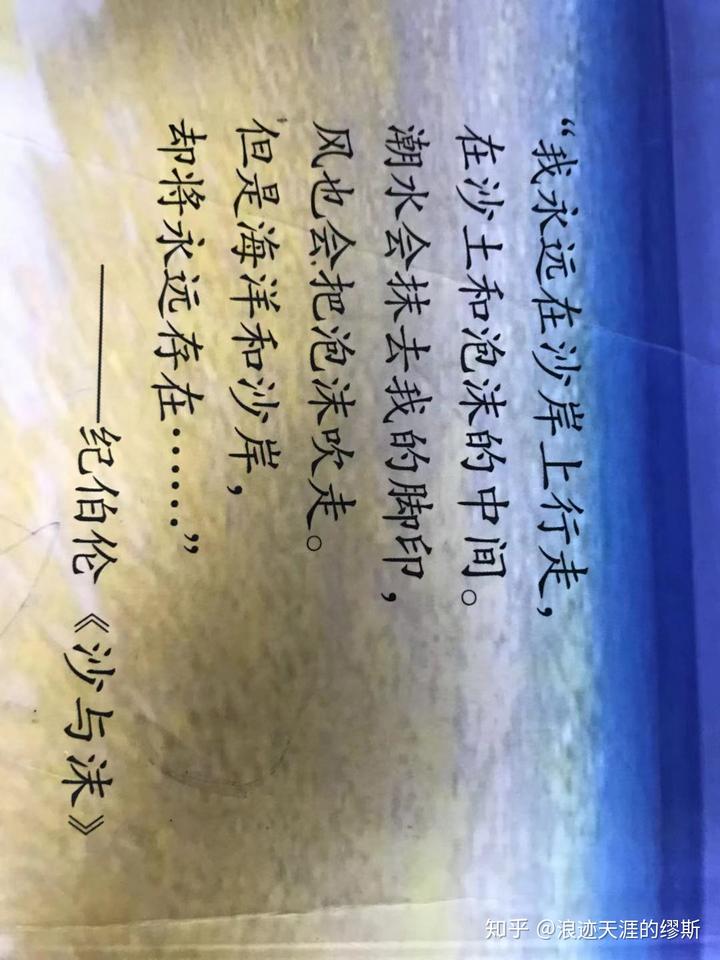 “我永远在沙岸上行走，
在沙土和泡沫的中间。
潮水会抹去我的脚印，
风也会把泡沫吹走。
但是海洋和沙岸，
却将永远存在……”
——纪伯伦《沙与沫》
知乎 @浪迹天涯的缪斯